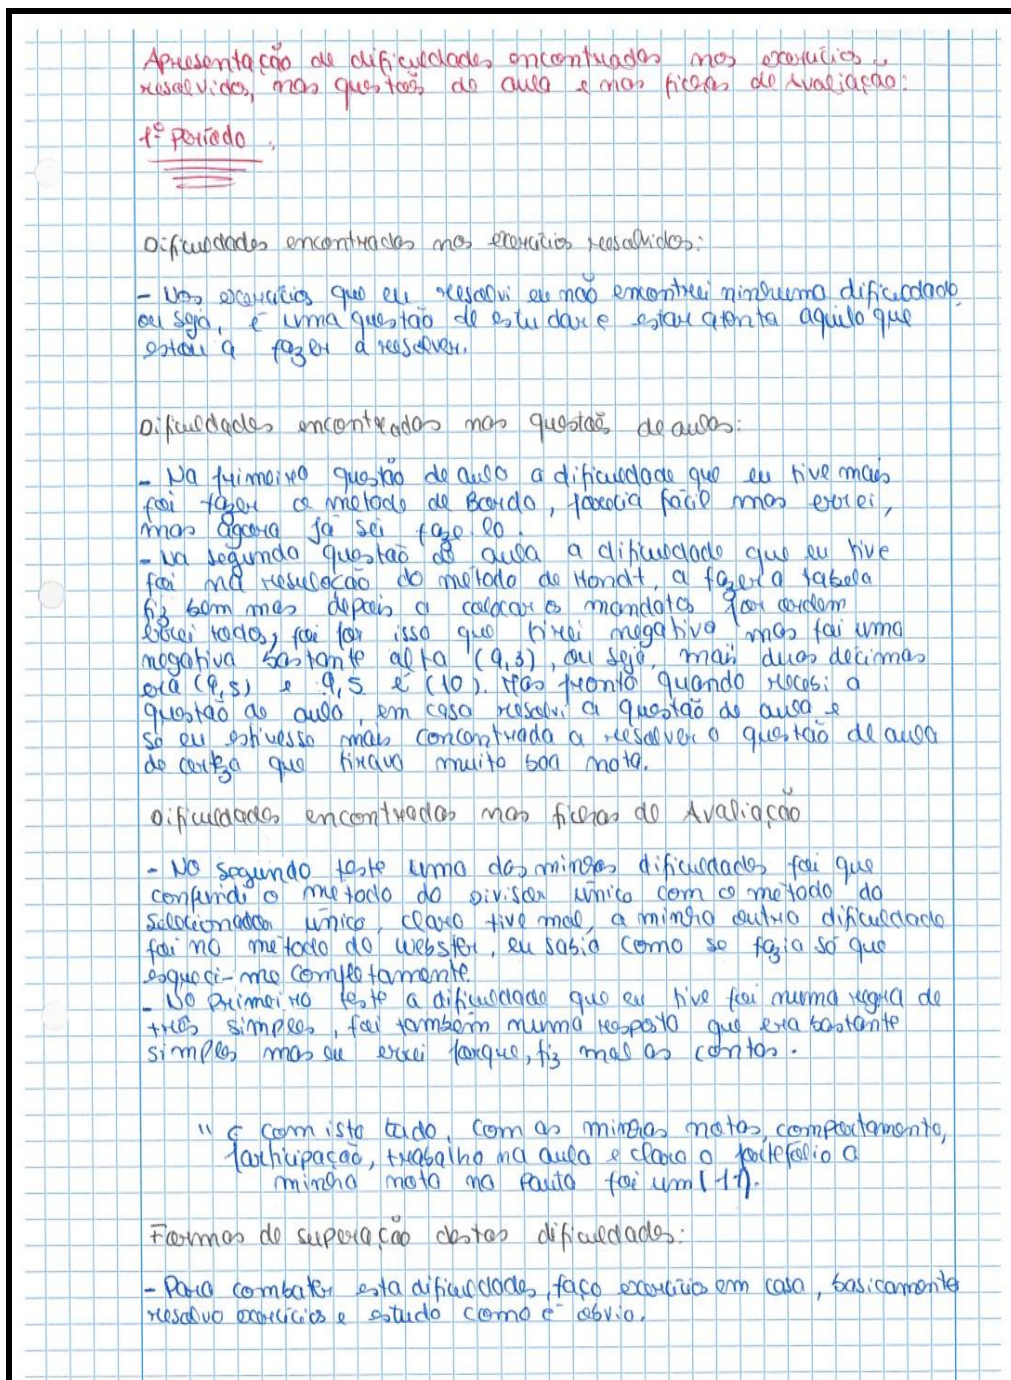 Apresentação de dificuldades encontradas nos exercícios
resolvidos, nas questões de aula e nas fichas de Avaliação:
1º Período.
Dificuldades encontradas nos exercícios resolvidos:
- Nos exercícios que eu resolvi eu não encontrei ninhuma dificuldade,
ou seja, é uma questão de estudar e estar atenta aquilo que
estou a fazer a resolver.
Dificuldades encontradas nas questões de aulas:
- Na primeira questão de aula a dificuldade que eu tive mais
foi fazer o metodo de Borda, parecia fácil mas errei,
mas agora já sei faze-lo.
- Na segunda questão de aula a dificuldade que eu tive
foi na resulação do método de Hondt, a fazer a tabela
fiz bem mas depois a colocar os mandatos por ordem
errei todos, foi por isso que tirei negativa mas foi uma
negativa bastante alta (9,3), ou seja, mais duas decimas
era (9,5) e 9,5 é (10). Mas pronto quando recebi a
questão de aula, em casa resolvi a questão de aula e
se eu estivesse mais concentrada a resolver a questão de aula
de certeza que tirava muito boa nota.
Dificuldades encontradas nas fichas de Avaliação
- No segundo teste uma das minhas dificuldades foi que
confundi o metodo do Divisor único com o metodo do
selecionador único, claro tive mal, a minha outra dificuldade
foi no metodo de webster, eu sabia como se fazia só que
esqueci-me completamente.
- No Primeiro teste a dificuldade que eu tive foi numa regra de
três simples, foi também numa resposta que era bastante
simples mas eu errei porque, fiz mal as contas.
" E com isto tudo, com as minhas notas, comportamento,
participação, trabalho na aula e claro o portefólio a
minha nota na Pauta foi um (11).
Formas de superação destas dificuldades:
- Para combater esta dificuldades, faço exercício em casa, basicamente
resolvo exercícios e estudo como é óbvio.